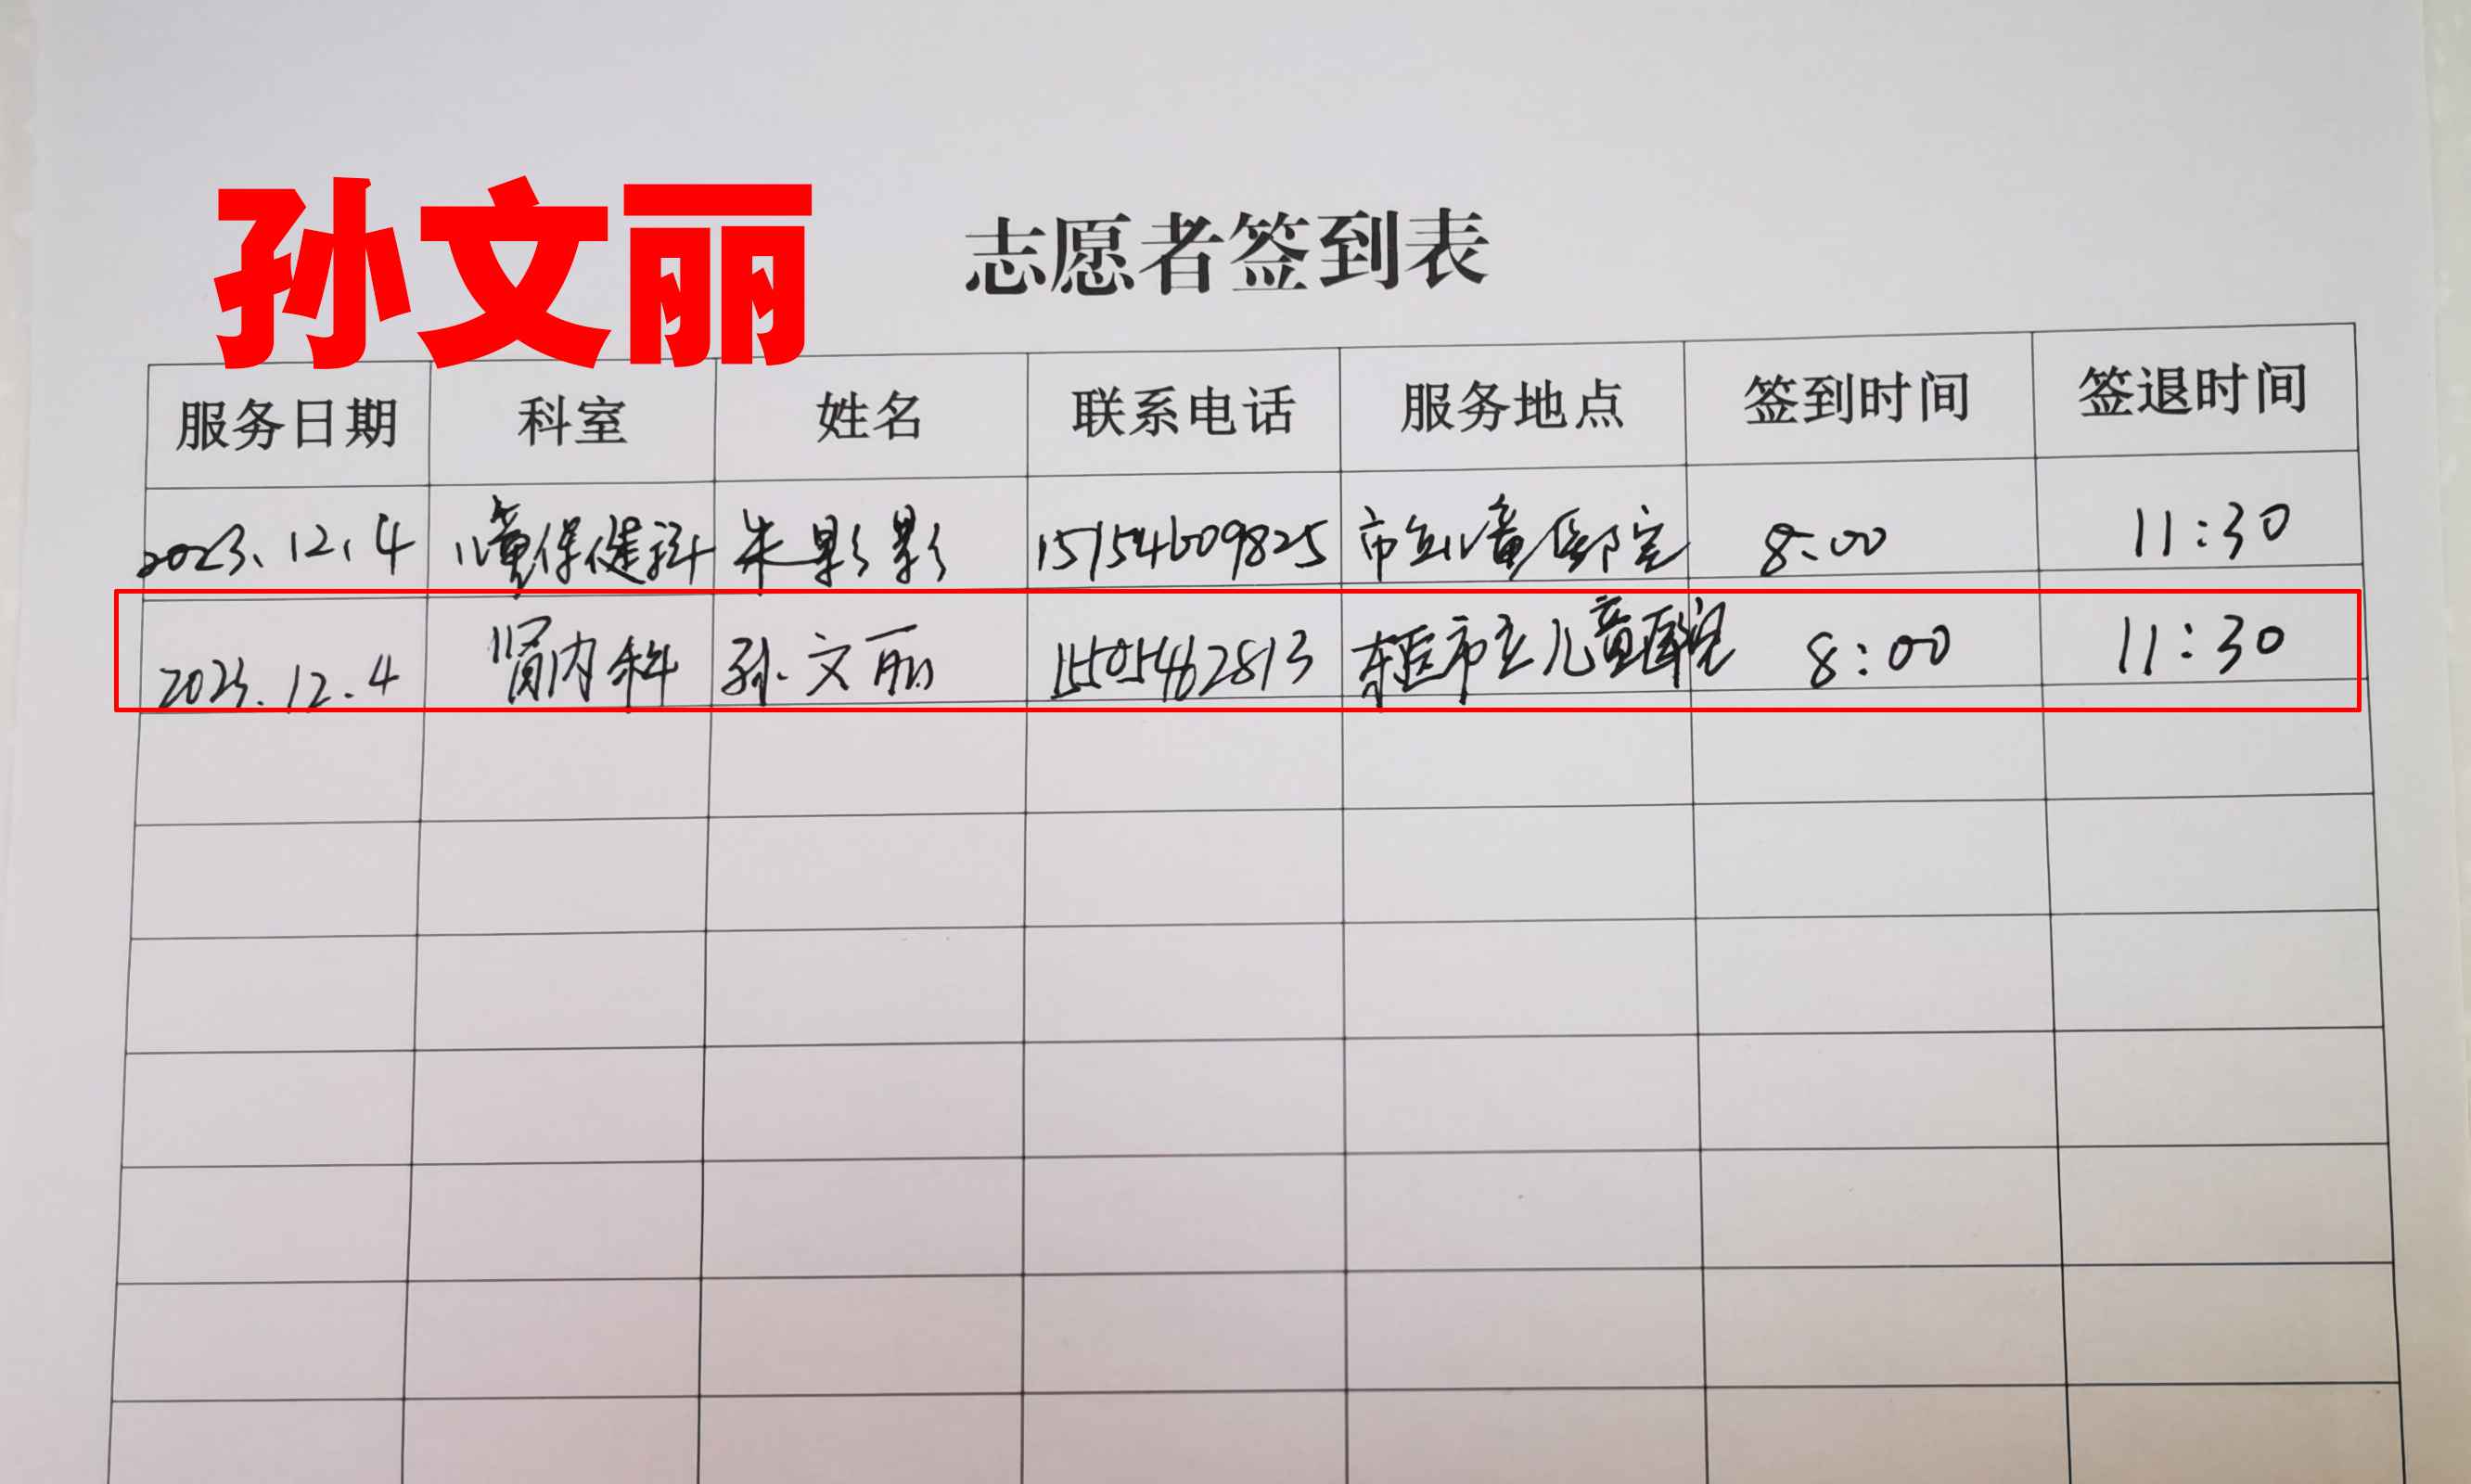 孙文丽
志愿者签到表
服务日期 科室 姓名 联系电话 服务地点 签到时间 签退时间
2023.12.4 儿童保健科 朱影影 15154609825 市立儿童医院 8:00 11:30
2023.12.4 肾内科 孙文丽 15505462813 市立儿童医院 8:00 11:30